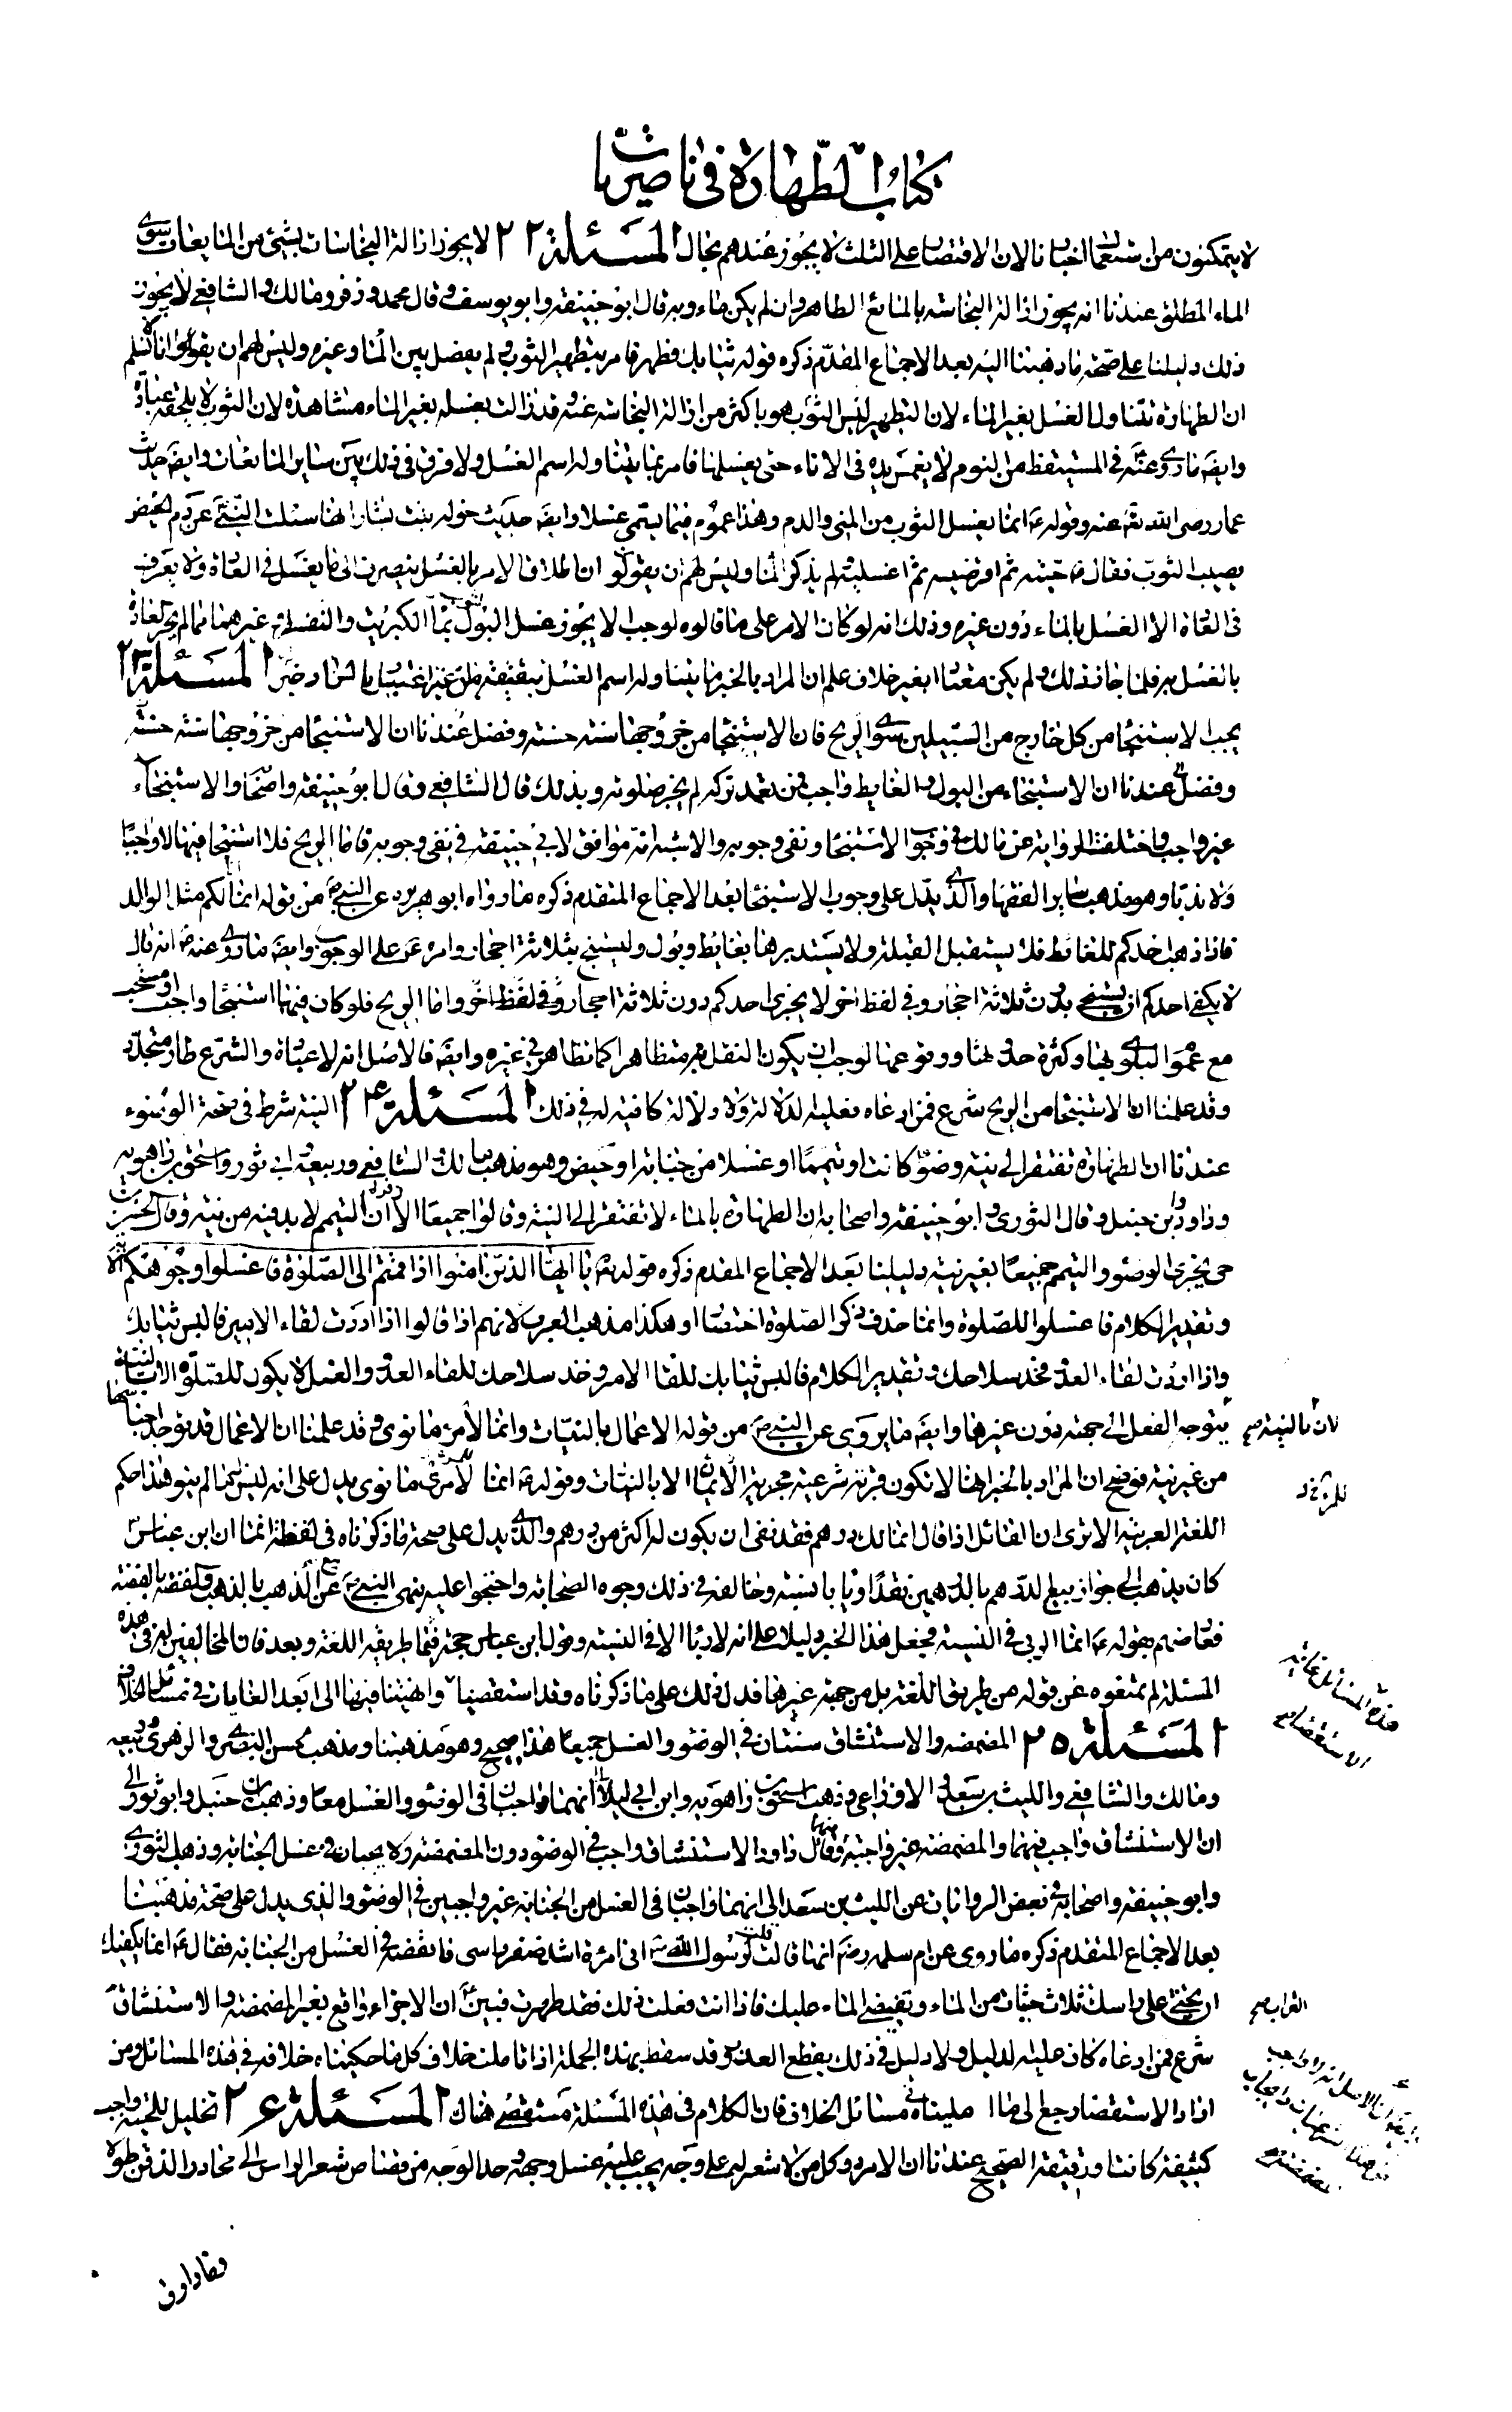 كتاب الطهارة في ناصريات
لا يتمكنون من استعمال الخبر بنا لان الاقتصار على الثلث لا يجوز عندهم بحال المسئلة ٢٢ لا يجوز ازالة النجاسات بشئ من المايعات سوى
الماء المطلق عندنا انه يجوز ازالة النجاسة بالمائع الطاهر وان لم يكن ماء وبه قال ابو حنيفة وابو يوسف وقال محمد وزفر ومالك والشافعي لا يجوز
ذلك دليلنا على صحة ما ذهبنا اليه بعد الاجماع المقدم ذكره قوله ثيابك فطهر فامر بتطهير الثوب ولم يفصل بين الماء وغيره وليس لهم ان يقولوا انا لا نسلم
ان الطهارة تتناول الغسل بغير الماء لان التطهير ليس الثوب هو باكثر من ازالة النجاسة عنه وقد زالت بغسله بغير الماء مشاهدة لان الثوب لا يلحقه عبادة
وايضا ما روى عنه في المستيقظ من النوم لا يغمس يده في الاناء حتى يغسلها فامر بما يتناوله اسم الغسل ولا فرق في ذلك بين ساير المايعات وايضا حديث
عمار رضى الله تع عنه وقوله ع انما يغسل الثوب من المني والدم وهذا عموم فيما يسمى غسلا وايضا حديث خوله بنت يسار انها سئلت النبي ص عن دم الحيض
يصيب الثوب فقال ص حتيه ثم اقرضيه ثم اغسليه ولم يذكر الماء وليس لهم ان يقولوا ان اطلاق الامر بالغسل ينصرف الى ما يغسل في العادة ولا يعرف
في العادة الا الغسل بالماء دون غيره وذلك انه لو كان الامر على ما قالوه لوجب الا يجوز غسل الثوب بماء الكبريت والنفط وغيرهما مما لم يجر العادة
بالغسل به فلما جاز ذلك ولم يكن معتادا بغير خلاف علم ان المراد بالخبر ما يتناوله اسم الغسل حقيقة من غير اعتبار بالعادة المسئلة ٢٣
يجب الاستنجاء من كل خارج من السبيلين سوى الريح فان الاستنجاء من خروجها سنة حسنة وفضل عندنا ان الاستنجاء من خروجها سنة حسنة
وفضل عندنا ان الاستنجاء من البول والغايط واجب فمن تعمد تركه لم يجز صلوته وبذلك قال الشافعي وقال ابو حنيفة واصحابه الاستنجاء
غير واجب واختلفت الرواية عن مالك في وجوب الاستنجاء ونفى وجوبه والاشبه انه موافق لابي حنيفة في نفى وجوبه فاما الريح فلا استنجاء فيها لا واجبا
ولا ندبا وهو مذهب ساير الفقهاء والذي يدل على وجوب الاستنجاء بعد الاجماع المتقدم ذكره ما رواه ابو هريره عن النبي ص من قوله انما انا لكم مثل الوالد
فاذا ذهب احدكم للغائط فلا يستقبل القبلة ولا يستدبرها بغايط وبول وليستنج بثلاثة احجار وامره ع على الوجوب وايضا ما روى عنه ص انه قال
لا يكفي احدكم ان يستنجي بدون ثلاثة احجار وفي لفظ اخر لا يجزى احدكم دون ثلاثة احجار وفي لفظ اخر واما الريح فلو كان فيها استنجاء واجب او مستحب
مع عموم البلوى بها وكثرة حدوثها ووقوعها لوجب ان يكون النقل به متظاهرا كما تظاهر في غيره وايضا فالاصل انه لا عبادة والشرع طار متجدد
وقد علمنا ان الاستنجاء من الريح شرع فمن ادعاه فعليه الدلالة ولا دلالة كافية له في ذلك المسئلة ٢٤ النية شرط في صحة الوضوء
عندنا ان الطهارة تفتقر الى نية وضوء كانت او تيمما او غسلا من جنابة او حيض وهو مذهب مالك والشافعي وربيعة ابي ثور واسحق بن راهويه
وداود وابن حنبل وقال الثوري وابو حنيفة واصحابه ان الطهارة بالماء لا تفتقر الى النية وقالوا جميعا الا زفر ان التيمم لا بد فيه من نية وقال الحسن بن
حى يجزى الوضوء والتيمم جميعا بغير نية دليلنا بعد الاجماع المقدم ذكره قوله تع يا ايها الذين امنوا اذا قمتم الى الصلوة فاغسلوا وجوهكم الآية
وتقدير الكلام فاغسلوا للصلوة وانما حذف ذكر الصلوة اختصارا وهكذا مذهب العرب لانهم اذا قالوا اذا اردت لقاء الامير فالبس ثيابك
واذا اردت لقاء العدو فخذ سلاحك وتقدير الكلام فالبس ثيابك للقاء الامير وخذ سلاحك للقاء العدو والغسل لا يكون للصلوة الا بالنية
لان بالنية صح
يتوجه الفعل الى جهة دون غيرها وايضا ما يروى عن النبي ص من قوله الاعمال بالنيات وانما لامرئ ما نوى وقد علمنا ان الاعمال قد توجد اجناسها
من غير نية فوضح ان المراد بالخبر انها لا تكون قربة شرعية مجزية الا بالنيات وقوله ع انما لامرئ ما نوى يدل على انه ليس له ما لم ينو هذا حكم
اللغة العربية الا ترى ان القائل اذا قال انما لك درهم فقد نفى ان يكون له اكثر من درهم والذي يدل على صحة ما ذكرناه في لفظة انما ان ابن عباس
كان يذهب الى جواز بيع الدرهم بالدرهمين نقدا وياباه نسية وخالفه في ذلك وجوه الصحابة واحتجوا عليه بنهى النبي ص عن بيع الذهب بالذهب والفضة بالفضة
فعارضهم بقوله ع انما الربى في النسية فجعل هذا الخبر دليلا على انه لا ربا الا في النسية وقول ابن عباس حجة فيما طريقه اللغة وبعد فان المخالفين له في هذه
المسئلة لم يمنعوه عن قوله من طريق اللغة بل من جهة غيرها فدل ذلك على ما ذكرناه وقد استقصينا وانتهينا فيها الى ابعد الغايات في مسائل الخلاف
هذه المسئلة غاية
الاستقصاء صح
المسئلة ٢٥ المضمضة والاستنشاق سنتان في الوضوء والغسل جميعا هذا صحيح وهو مذهبنا ومذهب الحسن البصري والزهري وربيعه
ومالك والشافعي والليث بن سعد والاوزاعي وذهب اسحق بن راهويه وابن ابي ليلا الى انهما واجبان في الوضوء والغسل معا وذهب ابن حنبل وابو ثور الى
ان الاستنشاق واجب فيهما والمضمضة غير واجبة فيهما وقال داود الاستنشاق واجب في الوضوء دون المضمضة ولا يجبان في غسل الجنابة وذهب الثوري
وابو حنيفة واصحابه في بعض الروايات عن الليث بن سعد الى انهما واجبان في الغسل من الجنابة غير واجبين في الوضوء والذى يدل على صحة مذهبنا
بعد الاجماع المتقدم ذكره ما روى عن ام سلمه رض انها قالت قلت لرسول الله ص انى امرئة اشد ضفر راسى فانقضه في الغسل من الجنابة فقال ع انما يكفيك
ان تحثى على راسك ثلاث حثيات من الماء وتفيضى الماء عليك فاذا انت فعلت ذلك فقد طهرت فبين ع ان الاجزاء واقع بغير المضمضة والاستنشاق
شرع فمن ادعاه كان عليه الدليل ولا دليل في ذلك يقطع العذر وقد سقط بهذه الجملة اذا تاملت خلاف كل من حكيناه خلافه في هذه المسائل ومن
اراد الاستقصاء رجع الى ما امليناه في مسائل الخلاف فان الكلام في هذه المسئلة مستقصى هناك المسئلة ٢٦ تخليل اللحية واجب
كثيفة كانت او رقيقة الصحيح عندنا ان الامرد وكل من لا شعر له على وجهه يجب عليه غسل وجهه وحد الوجه من قصاص شعر الراس الى محادر الذقن طولا